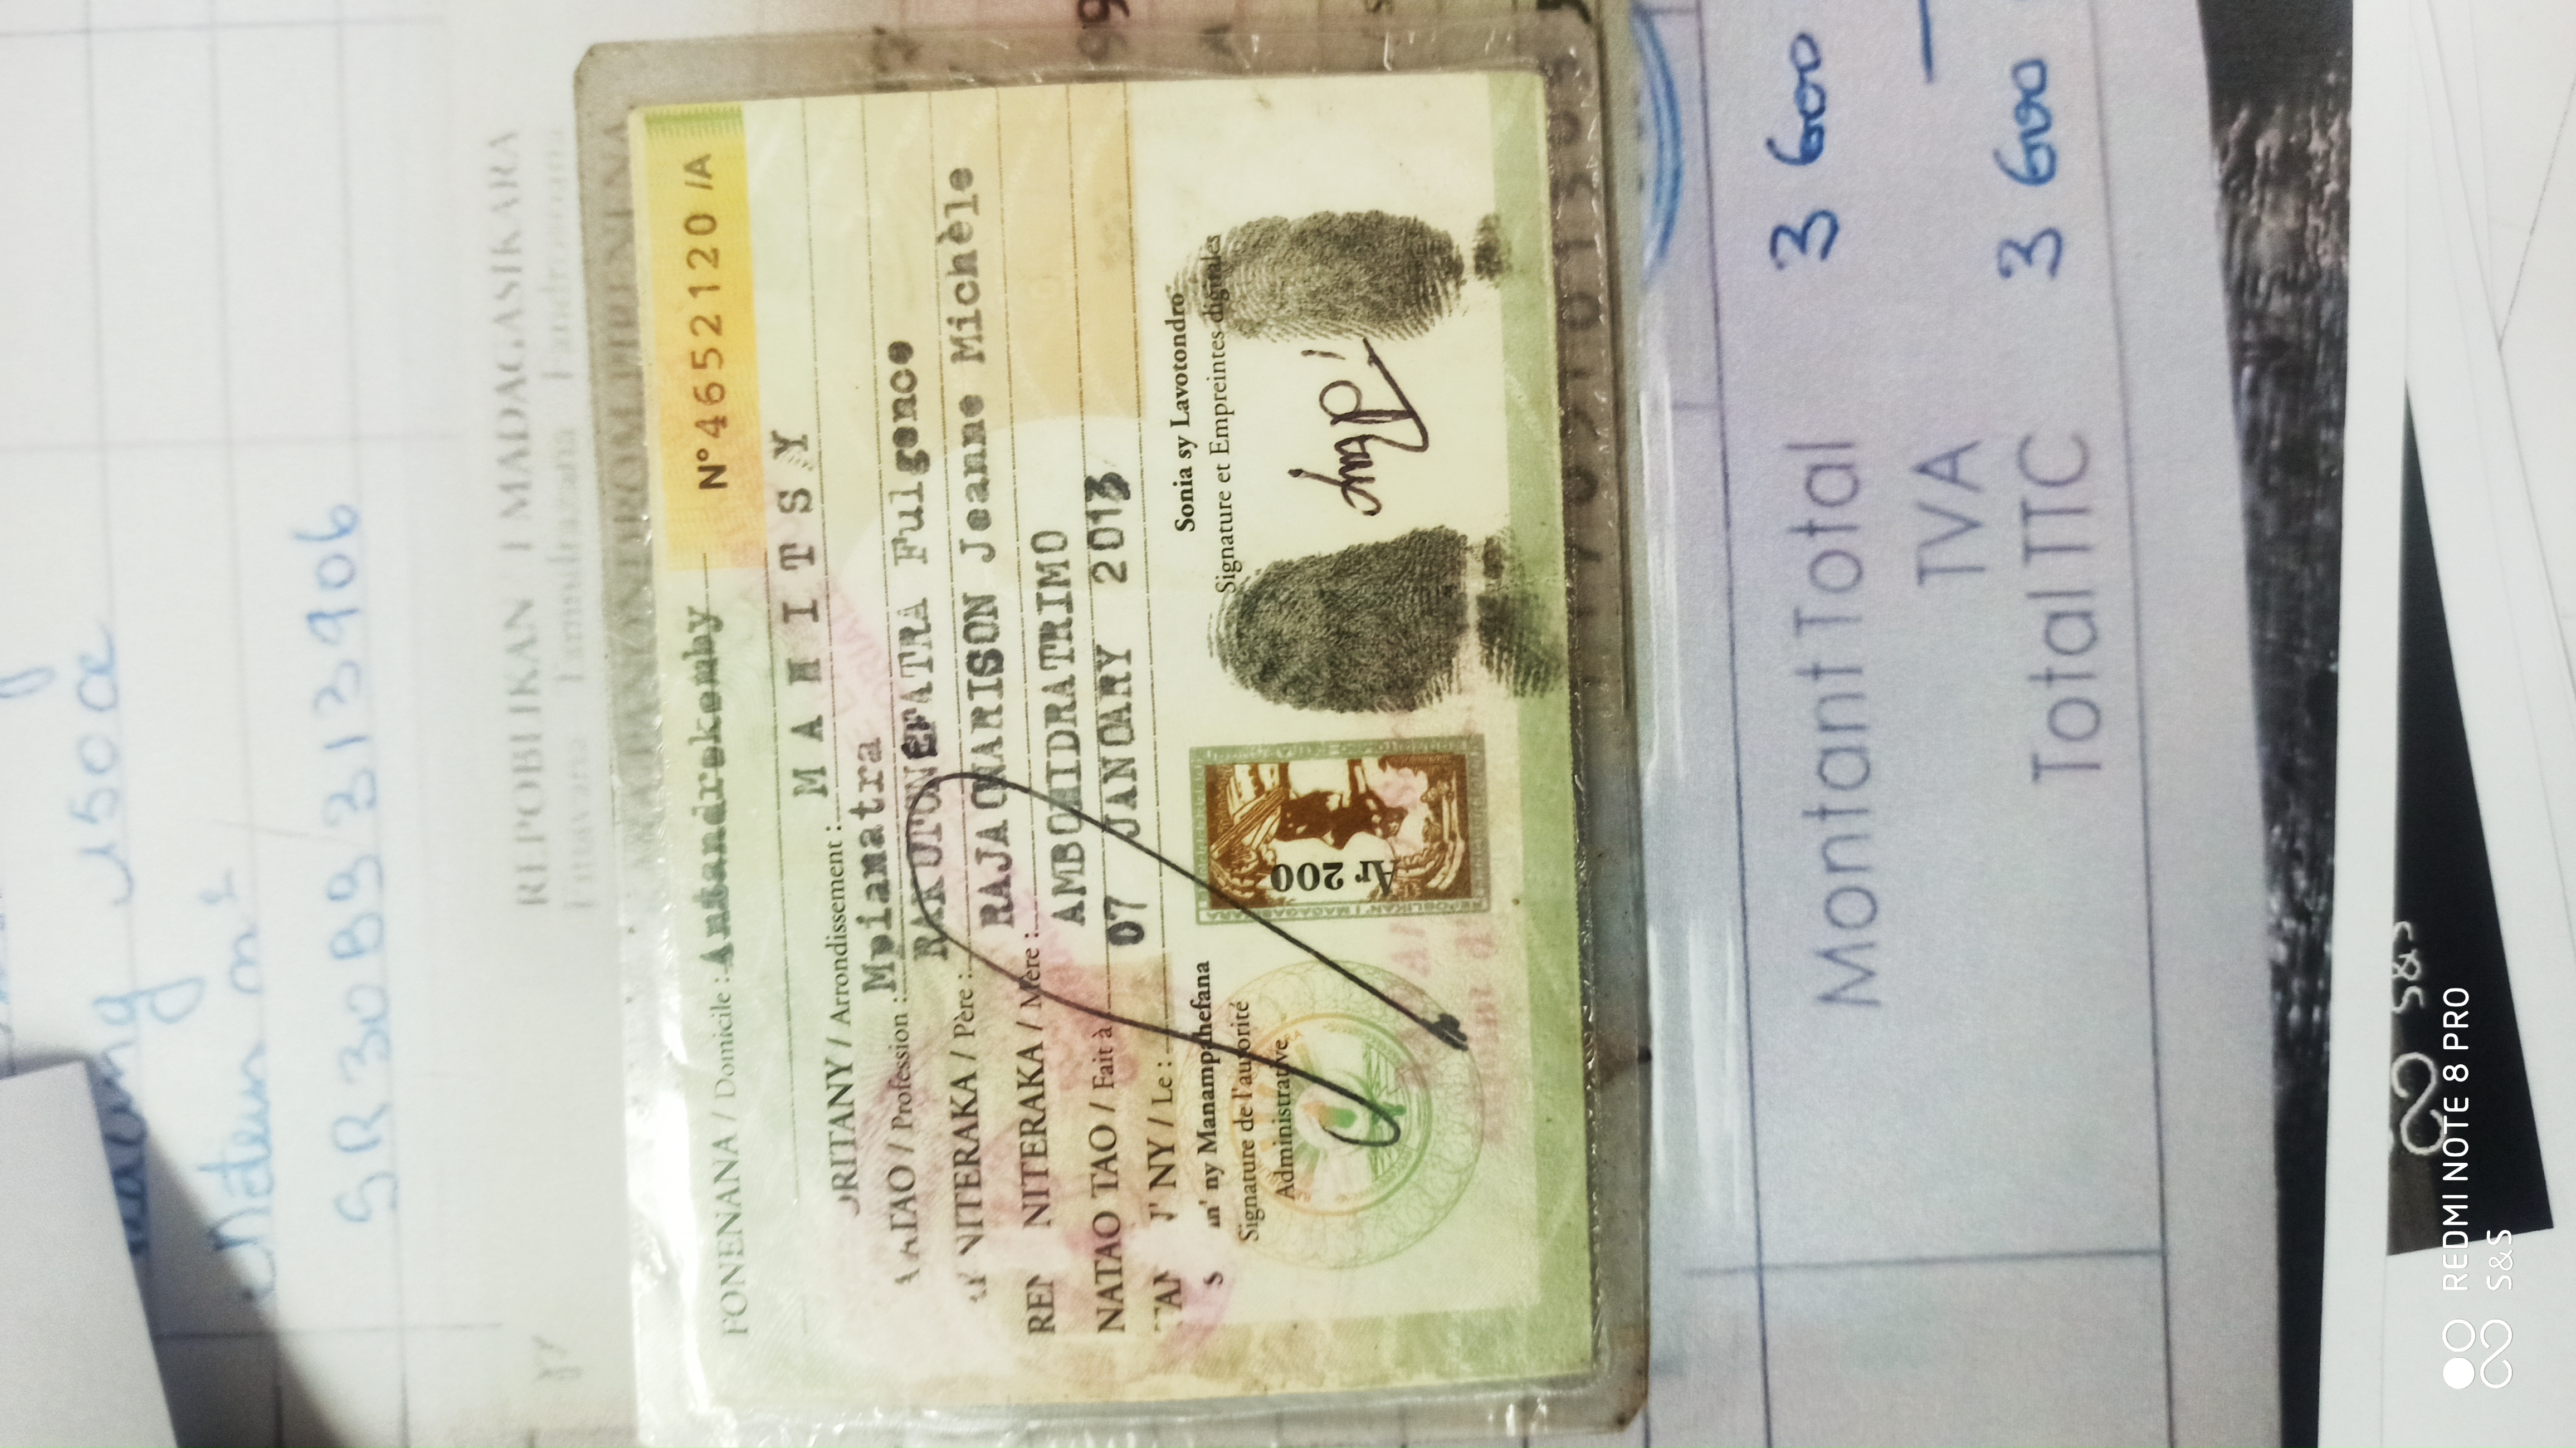 150 cc
Moteur n°
SR30B9313906
REPOBLIKAN' I MADAGASIKARA
Fitiavana Tanindrazana Fandrosoana
KARA-PANONDROM-PIRENENA
FONENANA / Domicile : Antandrokomby
N° 4652120 /A
ORITANY / Arrondissement : MAHITSY
ATAO / Profession : Mpianatra
NITERAKA / Père : RAKOTONEFATRA Fulgence
REN NITERAKA / Mère : RAJAONARISON Jeanne Michèle
NATAO TAO / Fait à AMBOHIDRATRIMO
TAN N' NY / Le : 07 JANOARY 2013
S n' ny Manampahefana
Signature de l'autorité
Administrative
Sonia sy Lavotondro
Signature et Empreintes digitales
Ar 200
Montant Total 3 600
TVA —
Total TTC 3 600
S&S
REDMI NOTE 8 PRO
S&S